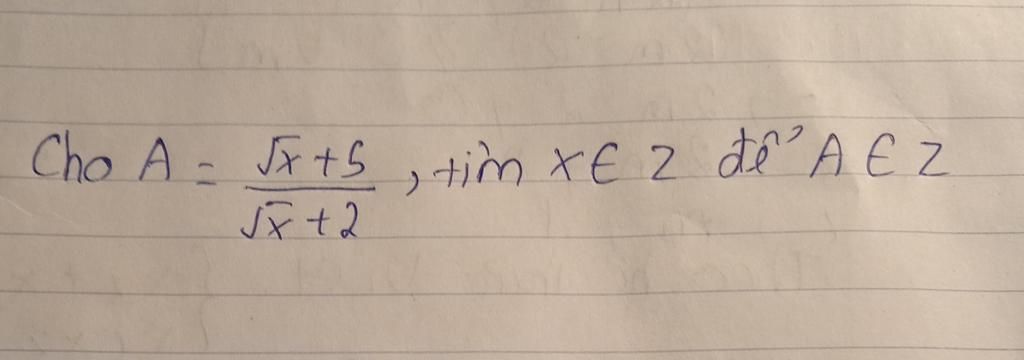 Cho A = \frac{\sqrt{x}+5}{\sqrt{x}+2}, tìm x ∈ Z để A ∈ Z